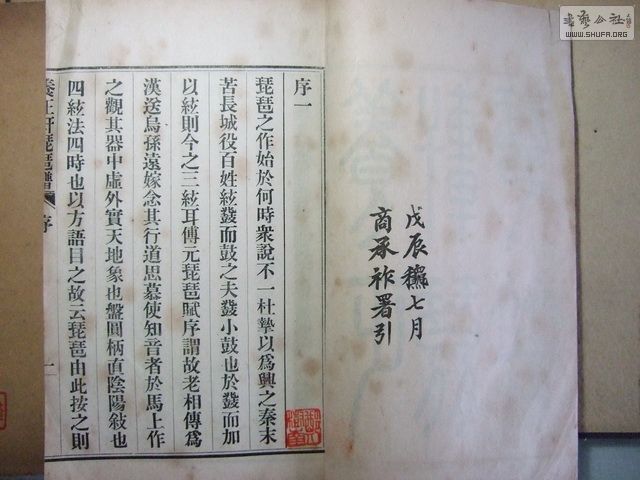 書藝公社
WWW.SHUFA.ORG
戊辰龝七月
商承祚署引
序一
琵琶之作始於何時衆說不一杜摯以爲興之秦末
苦長城役百姓絃鼗而鼓之夫鼗小鼓也於鼗而加
以絃則今之三絃耳傅元琵琶賦序謂故老相傳爲
漢送烏孫遠嫁念其行道思慕使知音者於馬上作
之觀其器中虛外實天地象也盤圓柄直陰陽敍也
四絃法四時也以方語目之故云琵琶由此按之則
養正軒琵琶譜 序 一